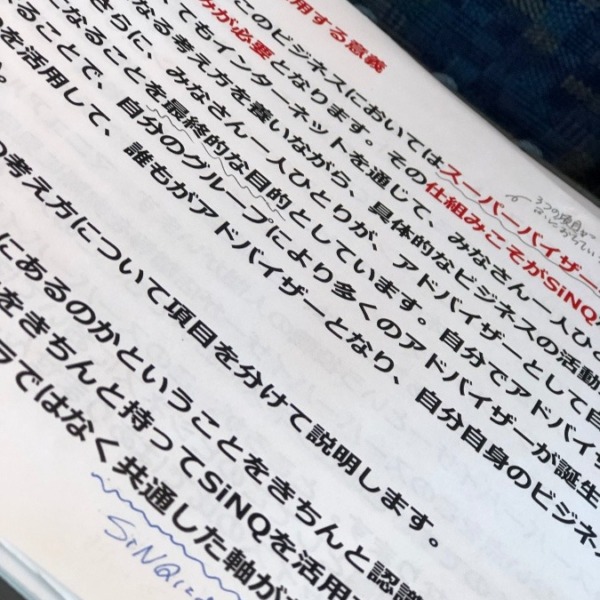 用する意義
このビジネスにおいてはスーパーバイザー
みが必要となります。その仕組みこそがSiNQ
てもインターネットを通じて、みなさん一人ひ
さらに、みなさん一人ひとりが、具体的なビジネスの活動
なる考え方を養いながら、アドバイザーとして自
になることを最終的な目的としています。自分でアドバイザ
ることで、自分のグループにより多くのアドバイザーが誕生
を活用して、誰もがアドバイザーとなり、自分自身のビジネス
の考え方について項目を分けて説明します。
にあるのかということをきちんと認識
をきちんと持ってSiNQを活用
ラではなく共通した軸が
SiNQに